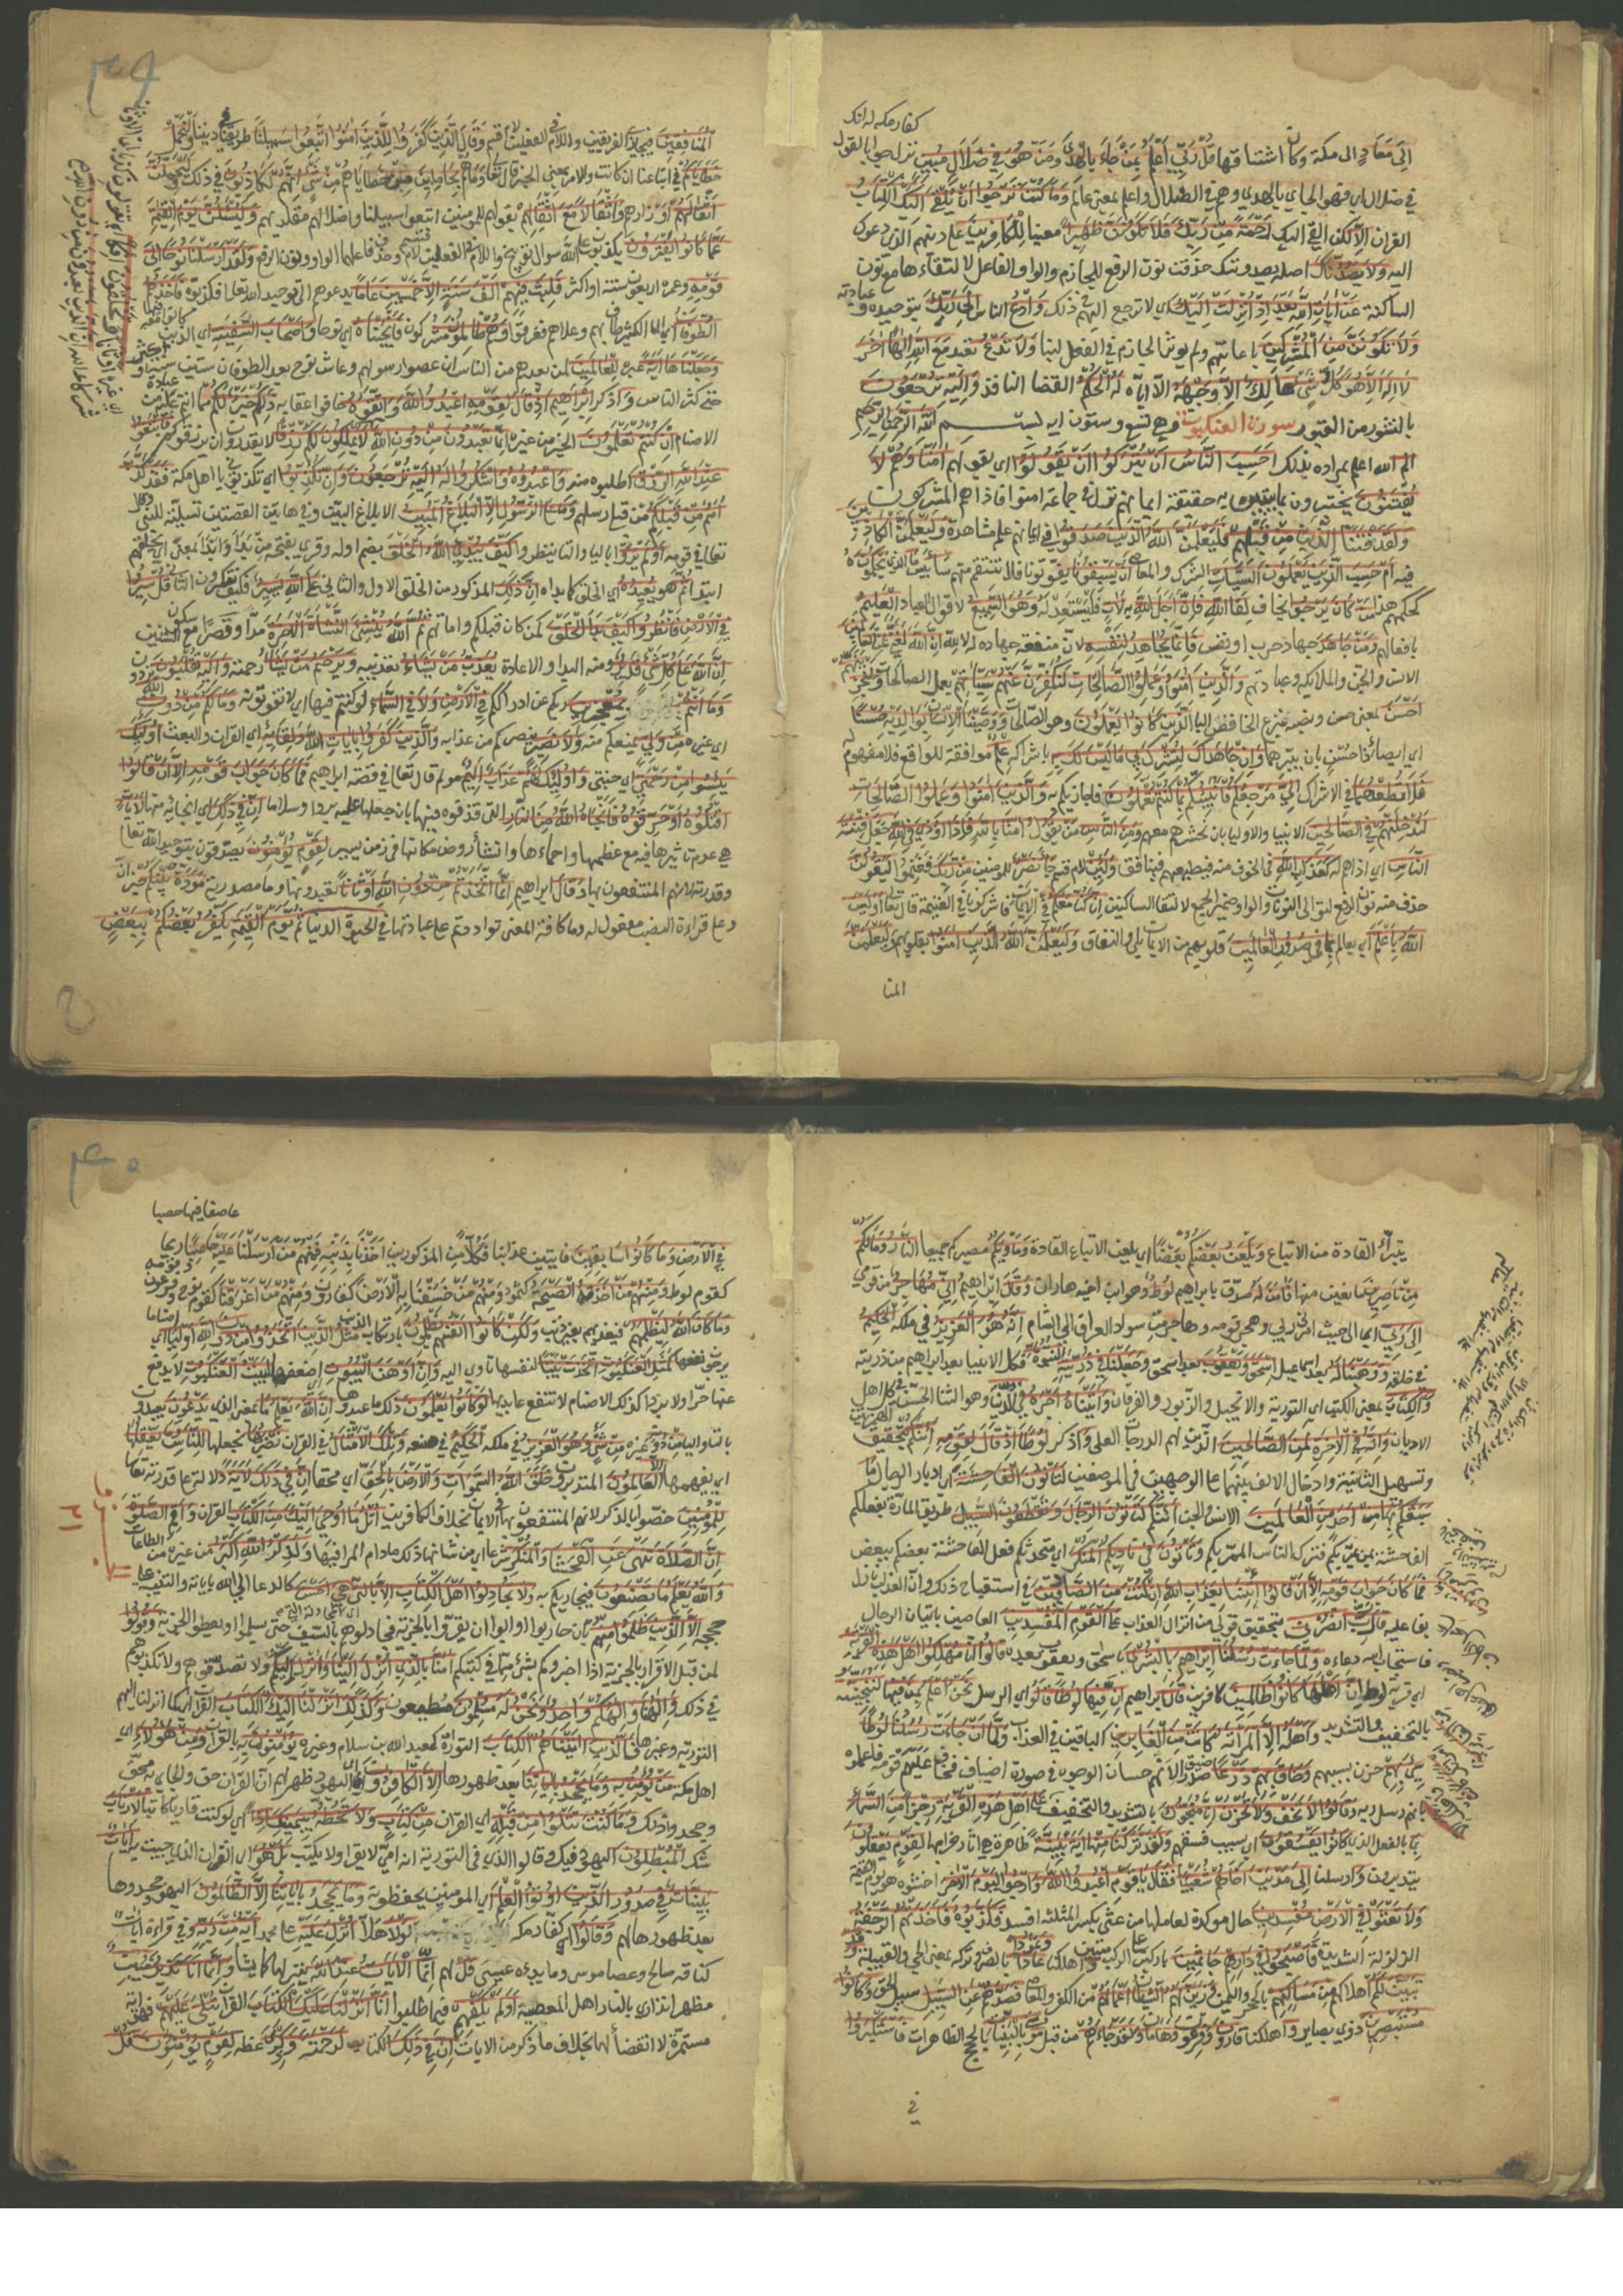 كفار مكه له انك
إِلَى مَعَادٍ الى مكة وكان اشتاقها قُلْ رَبِّي أَعْلَمُ بِمَنْ جَاءَ بِالْهُدَى وَمَنْ هُوَ فِي ضَلَالٍ مُبِينٍ نزل جوابا لقول
في ضلال اي فهو الجاي بالهدي وهم في الضلال واعلم بمعنى عالم وَمَا كُنْتَ تَرْجُوا أَنْ يُلْقَى إِلَيْكَ الْكِتَابُ
القران إِلَّا لكن القي اليك رَحْمَةً مِنْ رَبِّكَ فَلَا تَكُونَنَّ ظَهِيرًا معينا لِلْكَافِرِينَ على دينهم الذي دعوك
اليه وَلَا يَصُدُّنَّكَ اصله يصدوننك حذفت نون الرفع للجازم والواو الفاعل لالتقاءها مع نون
الساكنة عَنْ آيَاتِ اللَّهِ بَعْدَ إِذْ أُنْزِلَتْ إِلَيْكَ اي لا ترجع اليهم في ذلك وَادْعُ الناس إِلَى رَبِّكَ بتوحيده وعبادته
وَلَا تَكُونَنَّ مِنَ الْمُشْرِكِينَ باعانتهم ولم يوثر الجازم في الفعل لبنا وَلَا تَدْعُ تعبد مَعَ اللَّهِ إِلَهًا آخَرَ
لَا إِلَهَ إِلَّا هُوَ كُلُّ شَيْءٍ هَالِكٌ إِلَّا وَجْهَهُ الا اياه لَهُ الْحُكْمُ القضا النافذ وَإِلَيْهِ تُرْجَعُونَ
بالنشور من القبور سورة العنكبوت وهي تسع وستون ايه بسم الله الرحمن الرحيم
الم الله اعلم بمراده بذلك أَحَسِبَ النَّاسُ أَنْ يُتْرَكُوا أَنْ يَقُولُوا اي بقولهم آمَنَّا وَهُمْ لَا
يُفْتَنُونَ يختبرون بما يتبين به حقيقة ايمانهم نزل في جماعة امنوا فاذاهم المشركون
وَلَقَدْ فَتَنَّا الَّذِينَ مِنْ قَبْلِهِمْ فَلَيَعْلَمَنَّ اللَّهُ الَّذِينَ صَدَقُوا في ايمانهم علم مشاهدة وَلَيَعْلَمَنَّ الْكَاذِبِينَ
فيه أَمْ حَسِبَ الَّذِينَ يَعْمَلُونَ السَّيِّئَاتِ الشرك والمعاصي أَنْ يَسْبِقُونَا يفوتونا فلا ننتقم منهم سَاءَ بيس مَا الذي يَحْكُمُونَ
حكمهم هذا مَنْ كَانَ يَرْجُوا يخاف لِقَاءَ اللَّهِ فَإِنَّ أَجَلَ اللَّهِ به لَآتٍ فليستعد له وَهُوَ السَّمِيعُ لاقوال العباد الْعَلِيمُ
بافعالهم وَمَنْ جَاهَدَ جهاد حرب او نفس فَإِنَّمَا يُجَاهِدُ لِنَفْسِهِ لان منفعة جهاده له لا لله إِنَّ اللَّهَ لَغَنِيٌّ عَنِ الْعَالَمِينَ
الانس والجن والملائكه وعبادتهم وَالَّذِينَ آمَنُوا وَعَمِلُوا الصَّالِحَاتِ لَنُكَفِّرَنَّ عَنْهُمْ سَيِّئَاتِهِمْ بعمل الصالحات وَلَنَجْزِيَنَّهُمْ
أَحْسَنَ بمعنى حسن ونصبه بنزع الخافض اليا الَّذِي كَانُوا يَعْمَلُونَ وهو الصالحات وَوَصَّيْنَا الْإِنْسَانَ بِوَالِدَيْهِ حُسْنًا
اي ايصاء ذا حسن بان يبرهما وَإِنْ جَاهَدَاكَ لِتُشْرِكَ بِي مَا لَيْسَ لَكَ بِهِ باشراكه عِلْمٌ موافقة للواقع فلا مفهوم له
فَلَا تُطِعْهُمَا في الاشراك إِلَيَّ مَرْجِعُكُمْ فَأُنَبِّئُكُمْ بِمَا كُنْتُمْ تَعْمَلُونَ فاجازيكم به وَالَّذِينَ آمَنُوا وَعَمِلُوا الصَّالِحَاتِ
لَنُدْخِلَنَّهُمْ فِي الصَّالِحِينَ الانبيا والاوليا بان نحشرهم معهم وَمِنَ النَّاسِ مَنْ يَقُولُ آمَنَّا بِاللَّهِ فَإِذَا أُوذِيَ فِي اللَّهِ جَعَلَ فِتْنَةَ
النَّاسِ اي اذاهم له كَعَذَابِ اللَّهِ في الخوف منه فيطيعهم فينافق وَلَئِنْ لام قسم جَاءَ نَصْرٌ للمومنين مِنْ رَبِّكَ فغنموا لَيَقُولُنَّ
حذف منه نون الرفع لتوالي النونات والواو ضمير الجمع لالتقا الساكنين إِنَّا كُنَّا مَعَكُمْ في الايمان فاشركونا في الغنيمة قال تعا أَوَلَيْسَ
اللَّهُ بِأَعْلَمَ اي بعالم بِمَا فِي صُدُورِ الْعَالَمِينَ قلوبهم من الايمان والنفاق وَلَيَعْلَمَنَّ اللَّهُ الَّذِينَ آمَنُوا بقلوبهم وَلَيَعْلَمَنَّ
المنا
٣٩
الْمُنَافِقِينَ فيجازي الفريقين واللام في الفعلين لام قسم وَقَالَ الَّذِينَ كَفَرُوا لِلَّذِينَ آمَنُوا اتَّبِعُوا سَبِيلَنَا طريقنا في ديننا وَلْنَحْمِلْ
خَطَايَاكُمْ في اتباعنا ان كانت والامر بمعنى الخبر قال تعا وَمَا هُمْ بِحَامِلِينَ مِنْ خَطَايَاهُمْ مِنْ شَيْءٍ إِنَّهُمْ لَكَاذِبُونَ في ذلك وَلَيَحْمِلُنَّ
أَثْقَالَهُمْ اوزارهم وَأَثْقَالًا مَعَ أَثْقَالِهِمْ بقولهم للمومنين اتبعوا سبيلنا واضلالهم مقلديهم وَلَيُسْأَلُنَّ يَوْمَ الْقِيَمَةِ
عَمَّا كَانُوا يَفْتَرُونَ يكذبون على الله سوال توبيخ واللام في الفعلين لام قسم وحذف فاعلهما الواو ونون الرفع وَلَقَدْ أَرْسَلْنَا نُوحًا إِلَى
قَوْمِهِ وعمره اربعون سنة او اكثر فَلَبِثَ فِيهِمْ أَلْفَ سَنَةٍ إِلَّا خَمْسِينَ عَامًا يدعوهم الى توحيد الله تعا فكذبوه فَأَخَذَهُمُ
الطُّوفَانُ اي الما الكثير طاف بهم وعلاهم فغرقوا وَهُمْ ظَالِمُونَ مشركون فَأَنْجَيْنَاهُ اي نوحا وَأَصْحَابَ السَّفِينَةِ اي الذين كانوا معه فيها
وَجَعَلْنَاهَا آيَةً عبرة لِلْعَالَمِينَ لمن بعدهم من الناس ان عصوا رسولهم وعاش نوح بعد الطوفان ستين سنة او اكثر
حتى كثر الناس وَ اذكر إِبْرَاهِيمَ إِذْ قَالَ لِقَوْمِهِ اعْبُدُوا اللَّهَ وَاتَّقُوهُ خافوا عقابه ذَلِكُمْ خَيْرٌ لَكُمْ مما انتم عليه من عبادة
الاصنام إِنْ كُنْتُمْ تَعْلَمُونَ الخير من غيره إِنَّمَا تَعْبُدُونَ مِنْ دُونِ اللَّهِ لَا يَمْلِكُونَ لَكُمْ رِزْقًا لا يقدرون ان يرزقوكم فَابْتَغُوا
عِنْدَ اللَّهِ الرِّزْقَ اطلبوه منه وَاعْبُدُوهُ وَاشْكُرُوا لَهُ إِلَيْهِ تُرْجَعُونَ وَإِنْ تُكَذِّبُوا اي تكذبوني يا اهل مكة فَقَدْ كَذَّبَ
أُمَمٌ مِنْ قَبْلِكُمْ من قبل رسلهم وَمَا عَلَى الرَّسُولِ إِلَّا الْبَلَاغُ الْمُبِينُ الابلاغ البين وفي هاتين القصتين تسلية للنبي وقال
تعا في قومه أَوَلَمْ يَرَوْا باليا والتا ينظروا كَيْفَ يُبْدِئُ اللَّهُ الْخَلْقَ بضم اوله وقري بفتحه من بدا وابدا بمعنى اي يخلقهم
ابتدا ثُمَّ هو يُعِيدُهُ اي الخلق كما بداه إِنَّ ذَلِكَ المذكور من الخلق الاول والثاني عَلَى اللَّهِ يَسِيرٌ فكيف تنكرون الثاني قُلْ سِيرُوا
فِي الْأَرْضِ فَانْظُرُوا كَيْفَ بَدَأَ الْخَلْقَ لمن كان قبلكم واماتهم ثُمَّ اللَّهُ يُنْشِئُ النَّشْأَةَ الْآخِرَةَ مدا وقصرا مع سكون الشين
إِنَّ اللَّهَ عَلَى كُلِّ شَيْءٍ قَدِيرٌ ومنه البدا والاعادة يُعَذِّبُ مَنْ يَشَاءُ تعذيبه وَيَرْحَمُ مَنْ يَشَاءُ رحمته وَإِلَيْهِ تُقْلَبُونَ تردون
وَمَا أَنْتُمْ بِمُعْجِزِينَ ربكم عن ادراككم فِي الْأَرْضِ وَلَا فِي السَّمَاءِ لو كنتم فيها اي لا تفوتونه وَمَا لَكُمْ مِنْ دُونِ اللَّهِ
اي غيره مِنْ وَلِيٍّ يمنعكم منه وَلَا نَصِيرٍ ينصركم من عذابه وَالَّذِينَ كَفَرُوا بِآيَاتِ اللَّهِ وَلِقَائِهِ اي القران والبعث أُولَئِكَ
يَئِسُوا مِنْ رَحْمَتِي اي جنتي وَأُولَئِكَ لَهُمْ عَذَابٌ أَلِيمٌ مولم قال تعا في قصة ابراهيم فَمَا كَانَ جَوَابَ قَوْمِهِ إِلَّا أَنْ قَالُوا
اقْتُلُوهُ أَوْ حَرِّقُوهُ فَأَنْجَاهُ اللَّهُ مِنَ النَّارِ التي قذفوه فيها بان جعلها عليه بردا وسلاما إِنَّ فِي ذَلِكَ اي انجائه منها لَآيَاتٍ
هي عدم تاثيرها فيه مع عظمها واخمادها وانشا روض مكانها في زمن يسير لِقَوْمٍ يُؤْمِنُونَ يصدقون بتوحيد الله تعا
وقدرته لانهم المنتفعون بها وَقَالَ ابراهيم إِنَّمَا اتَّخَذْتُمْ مِنْ دُونِ اللَّهِ أَوْثَانًا تعبدونها وما مصدرية مَوَدَّةَ بَيْنِكُمْ خبر ان
وعلى قراءة النصب مفعول له وما كافة المعنى تواددتم على عبادتها فِي الْحَيَوةِ الدُّنْيَا ثُمَّ يَوْمَ الْقِيَمَةِ يَكْفُرُ بَعْضُكُمْ بِبَعْضٍ
يتبرأ القادة من الاتباع وَيَلْعَنُ بَعْضُكُمْ بَعْضًا اي يلعن الاتباع القادة وَمَأْوَيكُمُ مصيركم جميعا النَّارُ وَمَا لَكُمْ
مِنْ نَاصِرِينَ مانعين منها فَآمَنَ لَهُ صدق بابراهيم لُوطٌ وهو ابن اخيه هاران وَقَالَ ابراهيم إِنِّي مُهَاجِرٌ من قومي
إِلَى رَبِّي اي الى حيث امرني ربي وهجر قومه وهاجر من سواد العراق الى الشام إِنَّهُ هُوَ الْعَزِيزُ في ملكه الْحَكِيمُ
في خلقه وَوَهَبْنَا لَهُ بعد اسماعيل إِسْحَقَ وَيَعْقُوبَ بعد اسحق وَجَعَلْنَا فِي ذُرِّيَّتِهِ النُّبُوَّةَ فكل الانبيا بعد ابراهيم من ذريته
وَالْكِتَابَ بمعنى الكتب اي التورية والانجيل والزبور والفرقان وَآتَيْنَاهُ أَجْرَهُ فِي الدُّنْيَا وهو الثنا الحسن في كل اهل
الاديان وَإِنَّهُ فِي الْآخِرَةِ لَمِنَ الصَّالِحِينَ الذين لهم الدرجات العلى وَ اذكر لُوطًا إِذْ قَالَ لِقَوْمِهِ أَئِنَّكُمْ بتحقيق الهمزتين
وتسهيل الثانية وادخال الالف بينهما على الوجهين في الموضعين لَتَأْتُونَ الْفَاحِشَةَ اي ادبار الرجال مَا
سَبَقَكُمْ بِهَا مِنْ أَحَدٍ مِنَ الْعَالَمِينَ الانس والجن أَئِنَّكُمْ لَتَأْتُونَ الرِّجَالَ وَتَقْطَعُونَ السَّبِيلَ طريق المارة بفعلكم
الفاحشة بمن يمر بكم فترك الناس الممر بكم وَتَأْتُونَ فِي نَادِيكُمُ الْمُنْكَرَ اي متحدثكم فعل الفاحشة بعضكم ببعض
فَمَا كَانَ جَوَابَ قَوْمِهِ إِلَّا أَنْ قَالُوا ائْتِنَا بِعَذَابِ اللَّهِ إِنْ كُنْتَ مِنَ الصَّادِقِينَ في استقباح ذلك وان العذاب نازل
بفاعليه قَالَ رَبِّ انْصُرْنِي بتحقيق قولي من انزال العذاب عَلَى الْقَوْمِ الْمُفْسِدِينَ العاصين باتيان الرجال
فاستجاب الله دعاءه وَلَمَّا جَاءَتْ رُسُلُنَا إِبْرَاهِيمَ بِالْبُشْرَى باسحق ويعقوب بعده قَالُوا إِنَّا مُهْلِكُوا أَهْلِ هَذِهِ الْقَرْيَةِ
اي قرية لوط إِنَّ أَهْلَهَا كَانُوا ظَالِمِينَ كافرين قَالَ ابراهيم إِنَّ فِيهَا لُوطًا قَالُوا اي الرسل نَحْنُ أَعْلَمُ بِمَنْ فِيهَا لَنُنَجِّيَنَّهُ
بالتخفيف والتشديد وَأَهْلَهُ إِلَّا امْرَأَتَهُ كَانَتْ مِنَ الْغَابِرِينَ الباقين في العذاب وَلَمَّا أَنْ جَاءَتْ رُسُلُنَا لُوطًا
سِيءَ بِهِمْ حزن بسببهم وَضَاقَ بِهِمْ ذَرْعًا صدرا لانهم حسان الوجوه في صورة اضياف فخاف عليهم قومه فاعلموه
بانهم رسل ربه وَقَالُوا لَا تَخَفْ وَلَا تَحْزَنْ إِنَّا مُنَجُّوكَ بالتشديد والتخفيف عَلَى أَهْلِ هَذِهِ الْقَرْيَةِ رِجْزًا مِنَ السَّمَاءِ
بِمَا بالفعل الذي كَانُوا يَفْسُقُونَ اي بسبب فسقهم وَلَقَدْ تَرَكْنَا مِنْهَا آيَةً بَيِّنَةً ظاهرة هي اثار خرابها لِقَوْمٍ يَعْقِلُونَ
يتدبرون وَ ارسلنا إِلَى مَدْيَنَ أَخَاهُمْ شُعَيْبًا فَقَالَ يَا قَوْمِ اعْبُدُوا اللَّهَ وَارْجُوا الْيَوْمَ الْآخِرَ اخشوه هو يوم القيمة
وَلَا تَعْثَوْا فِي الْأَرْضِ مُفْسِدِينَ حال موكدة لعاملها من عثي بكسر المثلثه افسد فَكَذَّبُوهُ فَأَخَذَتْهُمُ الرَّجْفَةُ
الزلزلة الشديدة فَأَصْبَحُوا فِي دَارِهِمْ جَاثِمِينَ باركين على الركب ميتين وَ اهلكنا عَادًا وَثَمُودًا بالصرف وتركه بمعنى الحي والقبيلة وَقَدْ
تَبَيَّنَ لَكُمْ اهلاكهم مِنْ مَسَاكِنِهِمْ بالحجر واليمن وَزَيَّنَ لَهُمُ الشَّيْطَانُ أَعْمَالَهُمْ من الكفر والمعاصي فَصَدَّهُمْ عَنِ السَّبِيلِ سبيل الحق وَكَانُوا
مُسْتَبْصِرِينَ ذوي بصاير وَ اهلكنا قَارُونَ وَفِرْعَوْنَ وَهَامَانَ وَلَقَدْ جَاءَهُمْ من قبل مُوسَى بِالْبَيِّنَاتِ بالحجج الظاهرات فَاسْتَكْبَرُوا
في
٤٠
عاصفا فيها حصبا
فِي الْأَرْضِ وَمَا كَانُوا سَابِقِينَ فايتين عذابنا فَكُلًّا من المذكورين أَخَذْنَا بِذَنْبِهِ فَمِنْهُمْ مَنْ أَرْسَلْنَا عَلَيْهِ حَاصِبًا ريحا
كقوم لوط وَمِنْهُمْ مَنْ أَخَذَتْهُ الصَّيْحَةُ كثمود وَمِنْهُمْ مَنْ خَسَفْنَا بِهِ الْأَرْضَ كقارون وَمِنْهُمْ مَنْ أَغْرَقْنَا كقوم نوح وفرعون وقومه
وَمَا كَانَ اللَّهُ لِيَظْلِمَهُمْ فيعذبهم بغير ذنب وَلَكِنْ كَانُوا أَنْفُسَهُمْ يَظْلِمُونَ بارتكاب الذنب مَثَلُ الَّذِينَ اتَّخَذُوا مِنْ دُونِ اللَّهِ أَوْلِيَاءَ اي اصناما
يرجون نفعها كَمَثَلِ الْعَنْكَبُوتِ اتَّخَذَتْ بَيْتًا لنفسها تاوي اليه وَإِنَّ أَوْهَنَ الْبُيُوتِ اضعفها لَبَيْتُ الْعَنْكَبُوتِ لا يدفع
عنها حرا ولا بردا كذلك الاصنام لا تنفع عابديها لَوْ كَانُوا يَعْلَمُونَ ذلك ما عبدوها إِنَّ اللَّهَ يَعْلَمُ مَا بمعنى الذي يَدْعُونَ يعبدون
باليا والتا مِنْ دُونِهِ غيره مِنْ شَيْءٍ وَهُوَ الْعَزِيزُ في ملكه الْحَكِيمُ في صنعه وَتِلْكَ الْأَمْثَالُ في القران نَضْرِبُهَا نجعلها لِلنَّاسِ وَمَا يَعْقِلُهَا
اي يفهمها إِلَّا الْعَالِمُونَ المتدبرون خَلَقَ اللَّهُ السَّمَوَاتِ وَالْأَرْضَ بِالْحَقِّ اي محقا إِنَّ فِي ذَلِكَ لَآيَةً دلالة على قدرته تعا
لِلْمُؤْمِنِينَ خصوا بالذكر لانهم المنتفعون بها في الايمان بخلاف الكافرين اتْلُ مَا أُوحِيَ إِلَيْكَ مِنَ الْكِتَابِ القران وَأَقِمِ الصَّلَوةَ
إِنَّ الصَّلَاةَ تَنْهَى عَنِ الْفَحْشَاءِ وَالْمُنْكَرِ شرعا اي من شانها ذلك مادام المرا فيها وَلَذِكْرُ اللَّهِ أَكْبَرُ من غيره من الطاعات
وَاللَّهُ يَعْلَمُ مَا تَصْنَعُونَ فيجازيكم به وَلَا تُجَادِلُوا أَهْلَ الْكِتَابِ إِلَّا بِالَّتِي هِيَ أَحْسَنُ كالدعا الى الله باياته والتنبيه على
حججه إِلَّا الَّذِينَ ظَلَمُوا مِنْهُمْ بان حاربوا وابوا ان يقروا بالجزية فجادلوهم بالسيف حتى يسلموا او يعطوا الجزية وَقُولُوا
لمن قبل الاقرار بالجزية اذا اخبروكم بشئ مما في كتبهم آمَنَّا بِالَّذِي أُنْزِلَ إِلَيْنَا وَأُنْزِلَ إِلَيْكُمْ ولا تصدقوهم ولا تكذبوهم
في ذلك وَإِلَهُنَا وَإِلَهُكُمْ وَاحِدٌ وَنَحْنُ لَهُ مُسْلِمُونَ مطيعون وَكَذَلِكَ أَنْزَلْنَا إِلَيْكَ الْكِتَابَ القران كما انزلنا اليهم
التورية وغيرها فَالَّذِينَ آتَيْنَاهُمُ الْكِتَابَ التورية كعبد الله بن سلام وغيره يُؤْمِنُونَ بِهِ بالقران وَمِنْ هَؤُلَاءِ اي
اهل مكة مَنْ يُؤْمِنُ بِهِ وَمَا يَجْحَدُ بِآيَاتِنَا بعد ظهورها إِلَّا الْكَافِرُونَ اي اليهود ظهر لهم ان القران حق والجاي به محق
وجحدوا ذلك وَمَا كُنْتَ تَتْلُوا مِنْ قَبْلِهِ اي القران مِنْ كِتَابٍ وَلَا تَخُطُّهُ بِيَمِينِكَ إِذًا اي لو كنت قاريا كاتبا لَارْتَابَ
شك الْمُبْطِلُونَ اليهود فيك وقالوا الذي في التورية انه امي لا يقرا ولا يكتب بَلْ هُوَ اي القران الذي جيت به آيَاتٌ
بَيِّنَاتٌ فِي صُدُورِ الَّذِينَ أُوتُوا الْعِلْمَ اي المومنين يحفظونه وَمَا يَجْحَدُ بِآيَاتِنَا إِلَّا الظَّالِمُونَ اليهود جحدوها
بعد ظهورها لهم وَقَالُوا اي كفار مكه لَوْلَا هلا أُنْزِلَ عَلَيْهِ على محمد آيَةٌ مِنْ رَبِّهِ وفي قراءة ايات
كناقه صالح وعصا موسى ومايده عيسى قُلْ لهم إِنَّمَا الْآيَاتُ عِنْدَ اللَّهِ ينزلها كما يشا وَإِنَّمَا أَنَا نَذِيرٌ مُبِينٌ
مظهر انذاري بالنار اهل المعصية أَوَلَمْ يَكْفِهِمْ فيما طلبوا أَنَّا أَنْزَلْنَا عَلَيْكَ الْكِتَابَ القران يُتْلَى عَلَيْهِمْ فهو اية
مستمرة لا انقضا لها بخلاف ما ذكر من الايات إِنَّ فِي ذَلِكَ الكتاب لَرَحْمَةً وَذِكْرَى عظة لِقَوْمٍ يُؤْمِنُونَ قُلْ